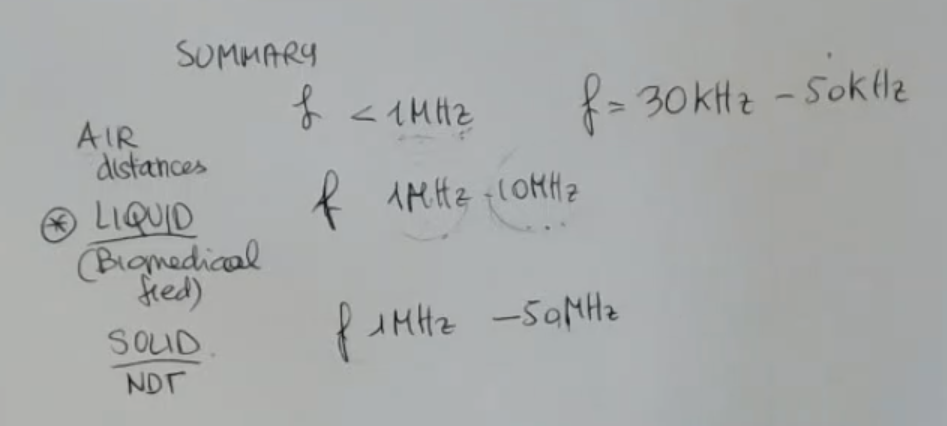 SUMMARY
f < 1MHz f = 30KHz - 50KHz
AIR
distances
f 1MHz - 10MHz
* LIQUID
(Biomedical
fied)
f 1MHz - 50MHz
SOLID
NDT